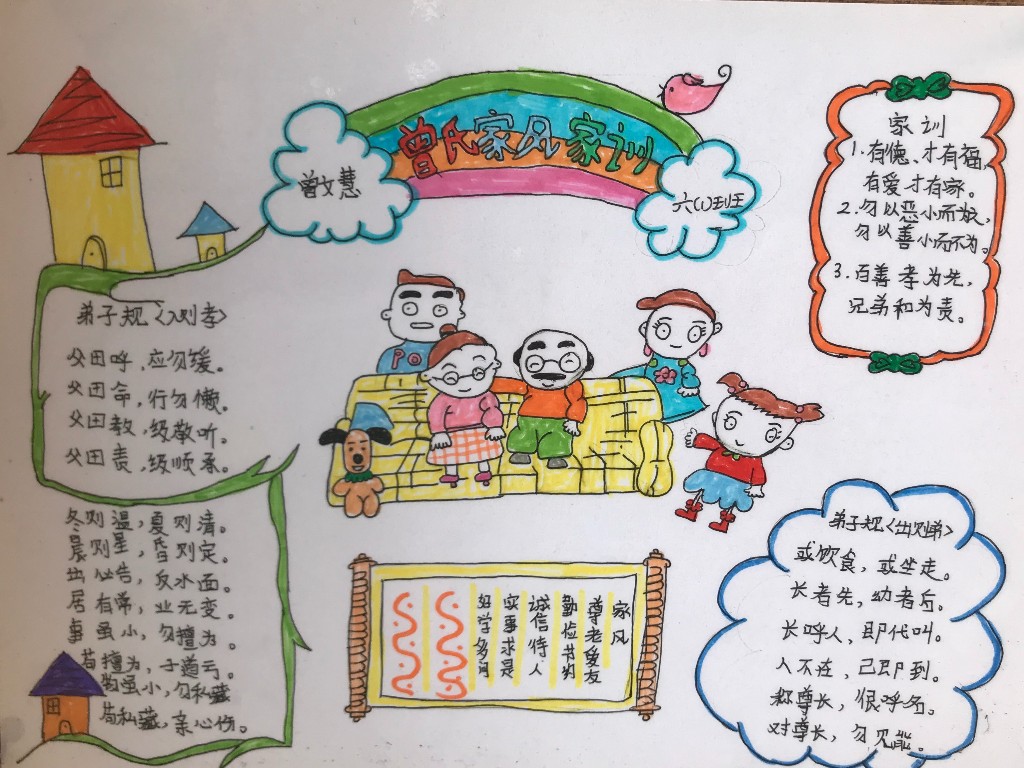 曾氏家风家训
曾文慧
六(1)班班
家训
1.有德、才有福,
有爱才有家。
2.勿以恶小而为,
勿以善小而不为。
3.百善孝为先,
兄弟和为责。
弟子规<入则孝>
父田呼,应勿缓。
父田命,行勿懒。
父田教,级敬听。
父田责,级顺承。
冬则温,夏则清。
晨则星,昏则定。
出心告,反水面。
居有常,业无变。
事虽小,勿擅为。
苟擅为,子道云。
物虽小,勿私藏
苟私藏,亲心伤。
PO
家风
尊老爱友
勤俭书刻
诚信待人
实事求是
好学多问
弟子规<出则弟>
或饮食,或坐走。
长者先,幼者后。
长呼人,即代叫。
人不在,己即到。
称尊长,恨呼名。
对尊长,勿见能。